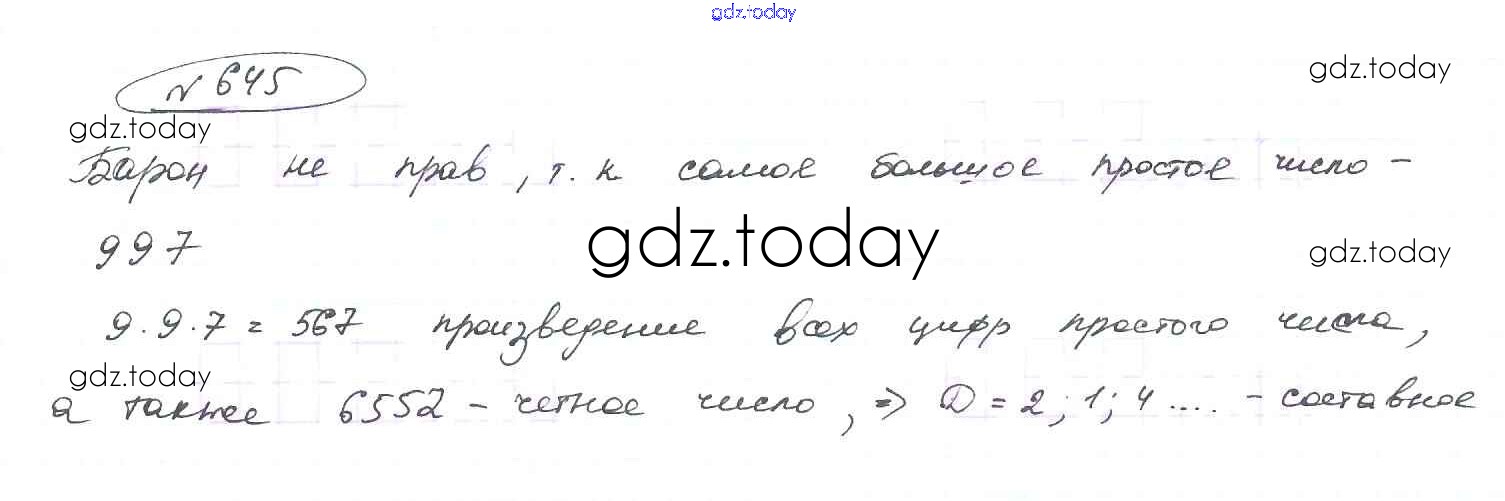 gdz.today
№ 645
gdz.today
gdz.today
Барон не прав, т. к самое большое простое число –
997
gdz.today
gdz.today
9·9·7 = 567 произведение всех цифр простого числа,
gdz.today
а также 6552 – четное число, => D = 2; 1; 4 .... – составное